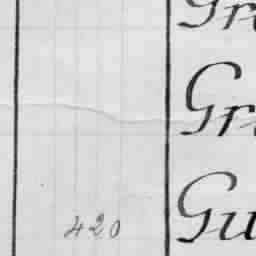 Gr
Gr
420 Gu